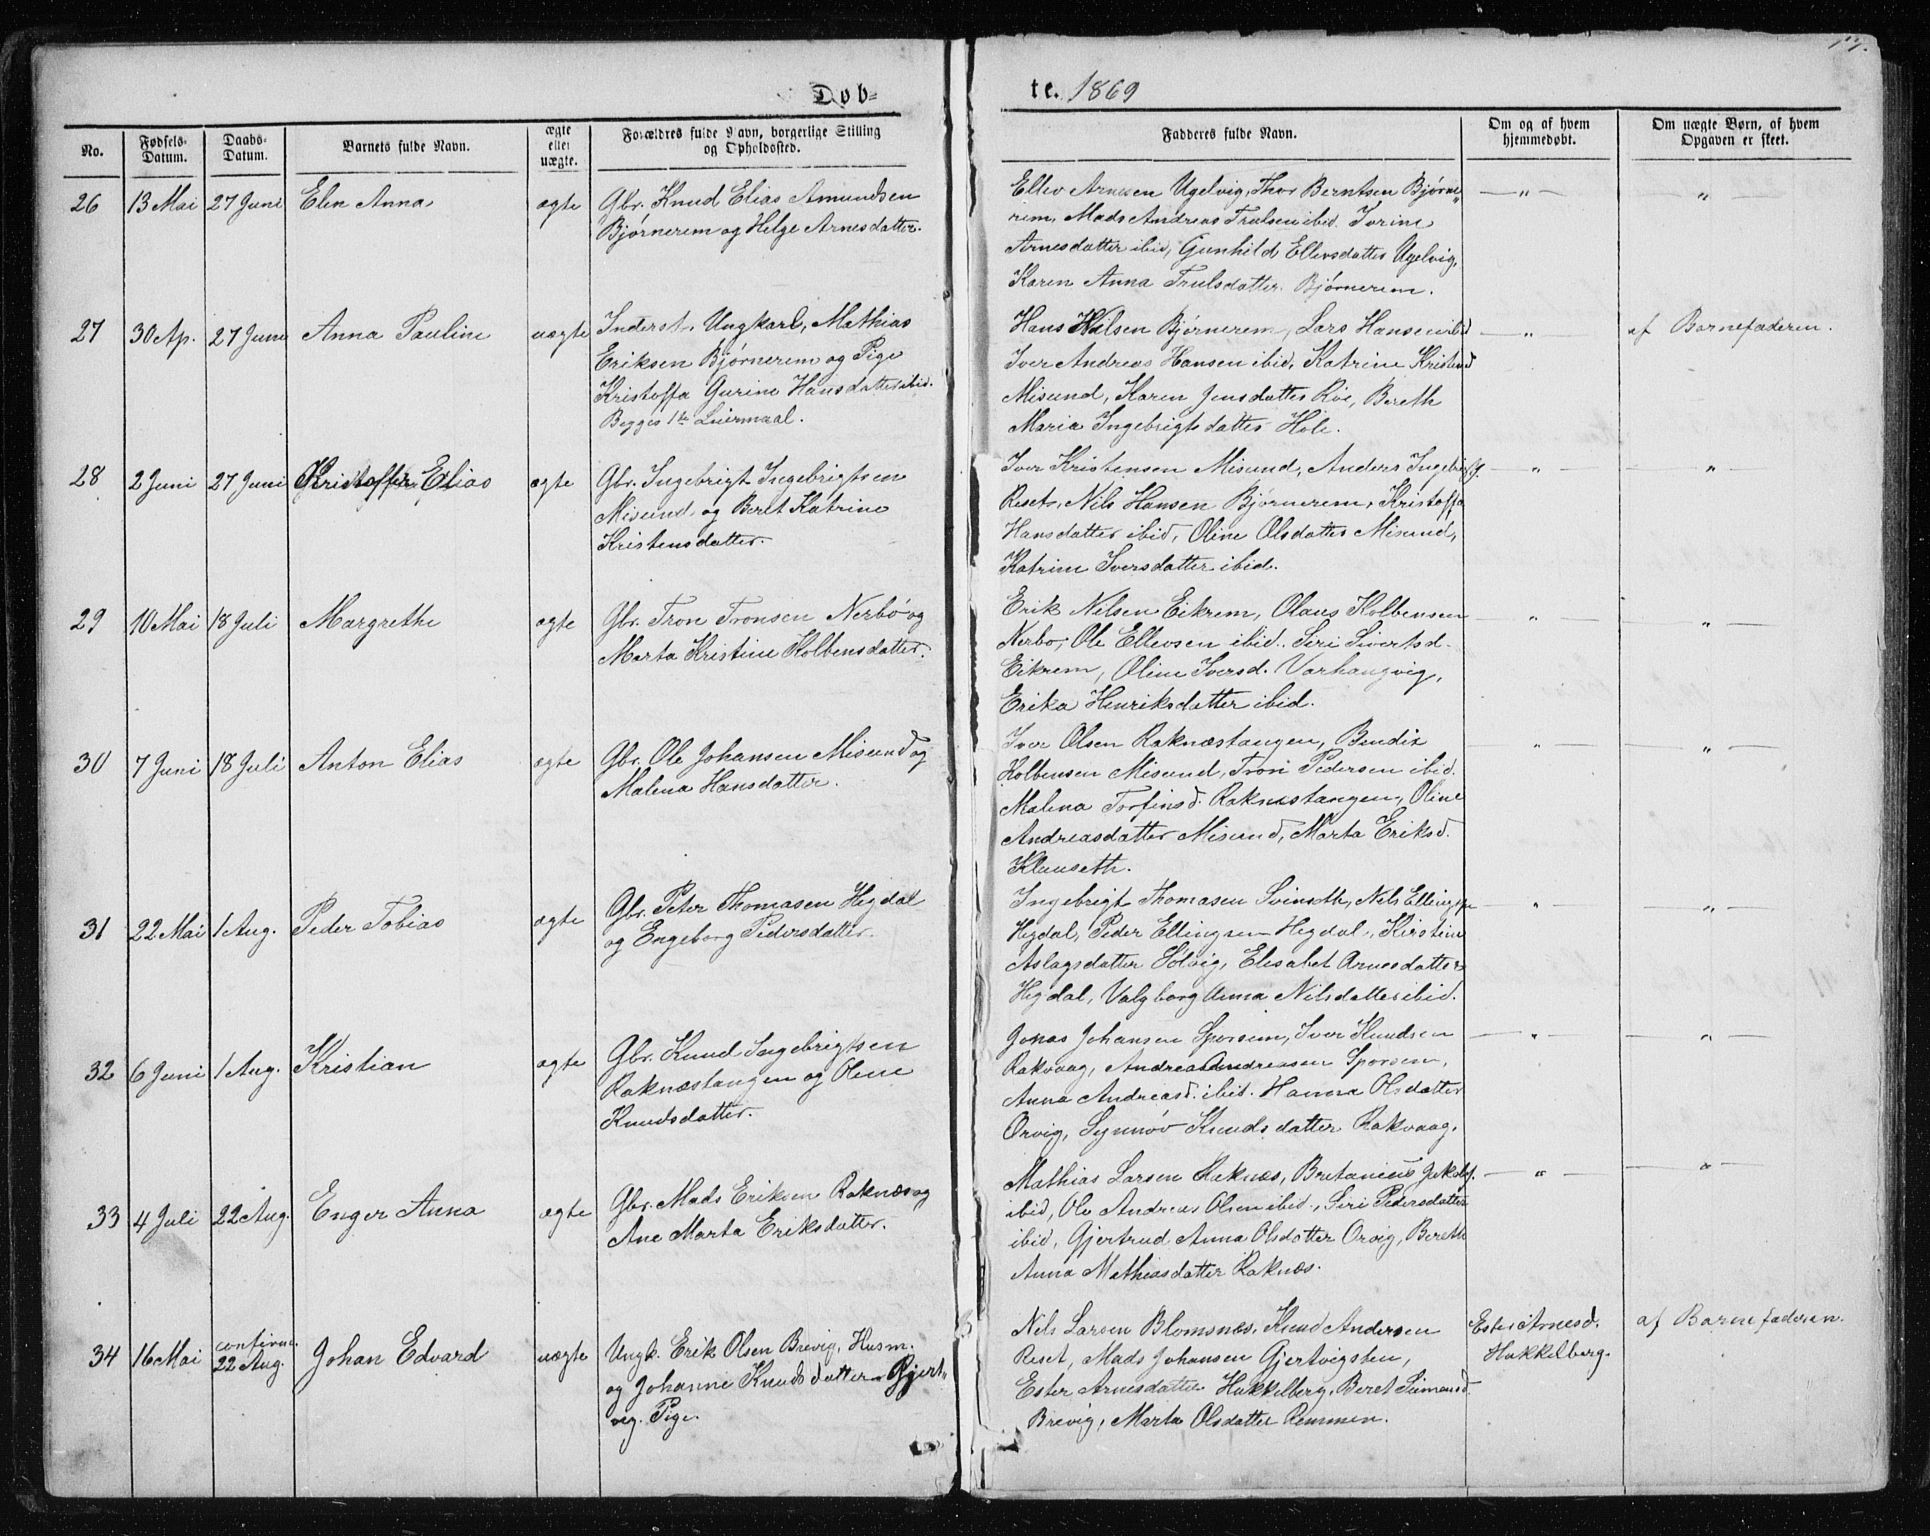 Døb=
te. 1869
No.
Fødsels-
Datum.
Daabs-
Datum.
Barnets fulde Navn.
ægte
eller
uægte.
Forældres fulde Navn, borgerlige Stilling
og Opholdssted.
Fadderes fulde Navn.
Om og af hvem
hjemmedøbt.
Om uægte Børn, af hvem
Opgaven er skeet.
26 13 Mai 27 Juni Elen Anna ægte
Gbr. Knud Elias Amundsen
Bjørnerem og Helge Arnesdatter.
Ellev Arnesen Ugelvig, Thor Berntsen Bjørne„
rem, Mads Andreas Trulsen ibid. Ivrine
Arnesdatter ibid, Gunhild Ellevsdatter Ugelvig,
Karen Anna Trulsdatter Bjørnerem.
— „ —
„
27 30 Ap. 27 Juni Anna Pauline uægte
Inderst. Ungkarl, Mathias
Eriksen Bjørnerem og Pige
Kristoffa Gurine Hansdatter ibid.
Begges 1te Leiermaal.
Hans Nilsen Bjørnerem, Lars Hansen ibid
Iver Andreas Hansen ibid, Katrine Kristensd
Misund, Karen Jensdatter Røe, Bereth
Maria Ingebrigtsdatter Hole.
— „ —
af Barnefaderen.
28 2 Juni 27 Juni Kristoffer Elias ægte
Gbr. Ingebrigt Ingebrigtsen
Misund, og Beret Katrine
Kristensdatter.
Iver Kristensen Misund, Anders Ingebrigts.
Reset, Nils Hansen Bjørnerem, Kristoffa
Hansdatter ibid, Oline Olsdatter Misund,
Katrine Iversdatter ibid.
— „ —
— „ —
29 10 Mai 18 Juli Margrethe ægte
Gbr. Tron Tronsen Nerbø og
Marta Kristine Kolbensdatter.
Erik Nilsen Eikrem, Olaus Kolbensen
Nerbø, Ole Ellevsen ibid. Siri Sivertsd.
Eikrem, Oline Iversd. Varhaugvig,
Erika Henriksdatter ibid.
— „ —
— „ —
30 7 Juni 18 Juli Anton Elias ægte
Gbr. Ole Johansen Misund og
Malena Hansdatter.
Iver Olsen Raknæstangen, Bendix
Kolbensen Misund, Tron Pedersen ibid.
Malena Torfinsd. Raknæstangen, Oline
Andreasdatter Misund, Marta Eriksd.
Klauseth.
— „ —
— „ —
31 22 Mai 1 Aug. Peder Tobias ægte
Gbr. Peter Thomasen Hegdal
og Engeborg Pedersdatter.
Ingebrigt Thomasen Svinøth, Nils Ellingsen
Hegdal, Peder Ellingsen Hegdal, Kirstine
Aslagsdatter Sølvig, Elisabet Arnesdatter
Hegdal, Valgborg Anna Nilsdatter ibid.
— „ —
— „ —
32 6 Juni 1 Aug. Kristian ægte
Gbr. Knud Ingebrigtsen
Raknæstangen og Oline
Knudsdatter.
Jonas Johansen Sporsem, Iver Knudsen
Rakvaag, Andreas Andreassen Sporsem,
Anna Andreasd. ibid. Hanna Olsdatter
Orvig, Synnøv Knudsdatter Rakvaag.
— „ —
— „ —
33 4 Juli 22 Aug. Enger Anna ægte
Gbr. Mads Eriksen Raknæs og
Ane Marta Eriksdatter.
Mathias Larsen Raknæs, Bretanius Jakobs.
ibid, Ole Andreas Olsen ibid, Siri Pedersdatter
ibid, Gjertrud Anna Olsdatter Orvig, Bereth
Anna Mathiasdatter Raknæs.
— „ —
— „ —
34 16 Mai confirm. 22 Aug. Johan Edvard uægte
Ungk. Erik Olsen Brevig, Husm.
og Johanne Knudsdatter Gjert„
vig. Pige.
Nils Larsen Blomsnæs, Knud Andersen
Reset, Mads Johansen Gjertvigsten,
Ester Arnesdatter Hukkelberg, Beret Simensd
Brevig, Marta Olsdatter Remmen.
Ester Arnesd.
Hukkelberg.
af Barnefaderen.